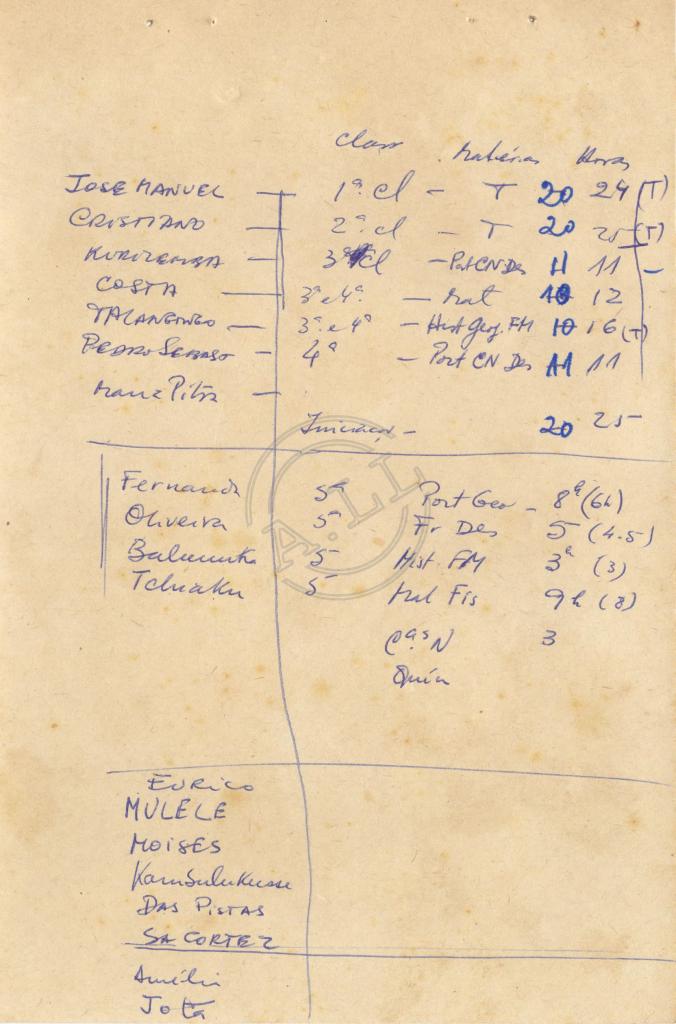 Class Matérias Horas
JOSE MANUEL — 1ª cl - T 20 24 (T)
CRISTIANO — 2ª cl - T 20 25 (T)
3ª cl - Port CN Des 11 11 -
COSTA — 3ª e 4ª - Mat 12
— 3ª e 4ª - Hist Geog. FM 10 16 (T)
PEDRO — 4ª - Port CN Des 11 11
Maria Pitra —
Iniciação - 20 25
Fernanda 5ª Port Geo - 8h (6h)
Oliveira 5 Fr Des 5 (4.5)
5 Hist. FM 3h (3)
Tchiaku 5 Mat Fis 9h (8)
Cªs N 3
Quím
EURICO
MULELE
MOISES
DAS PISTAS
SA CORTEZ
Amélia
Jota
A.LL